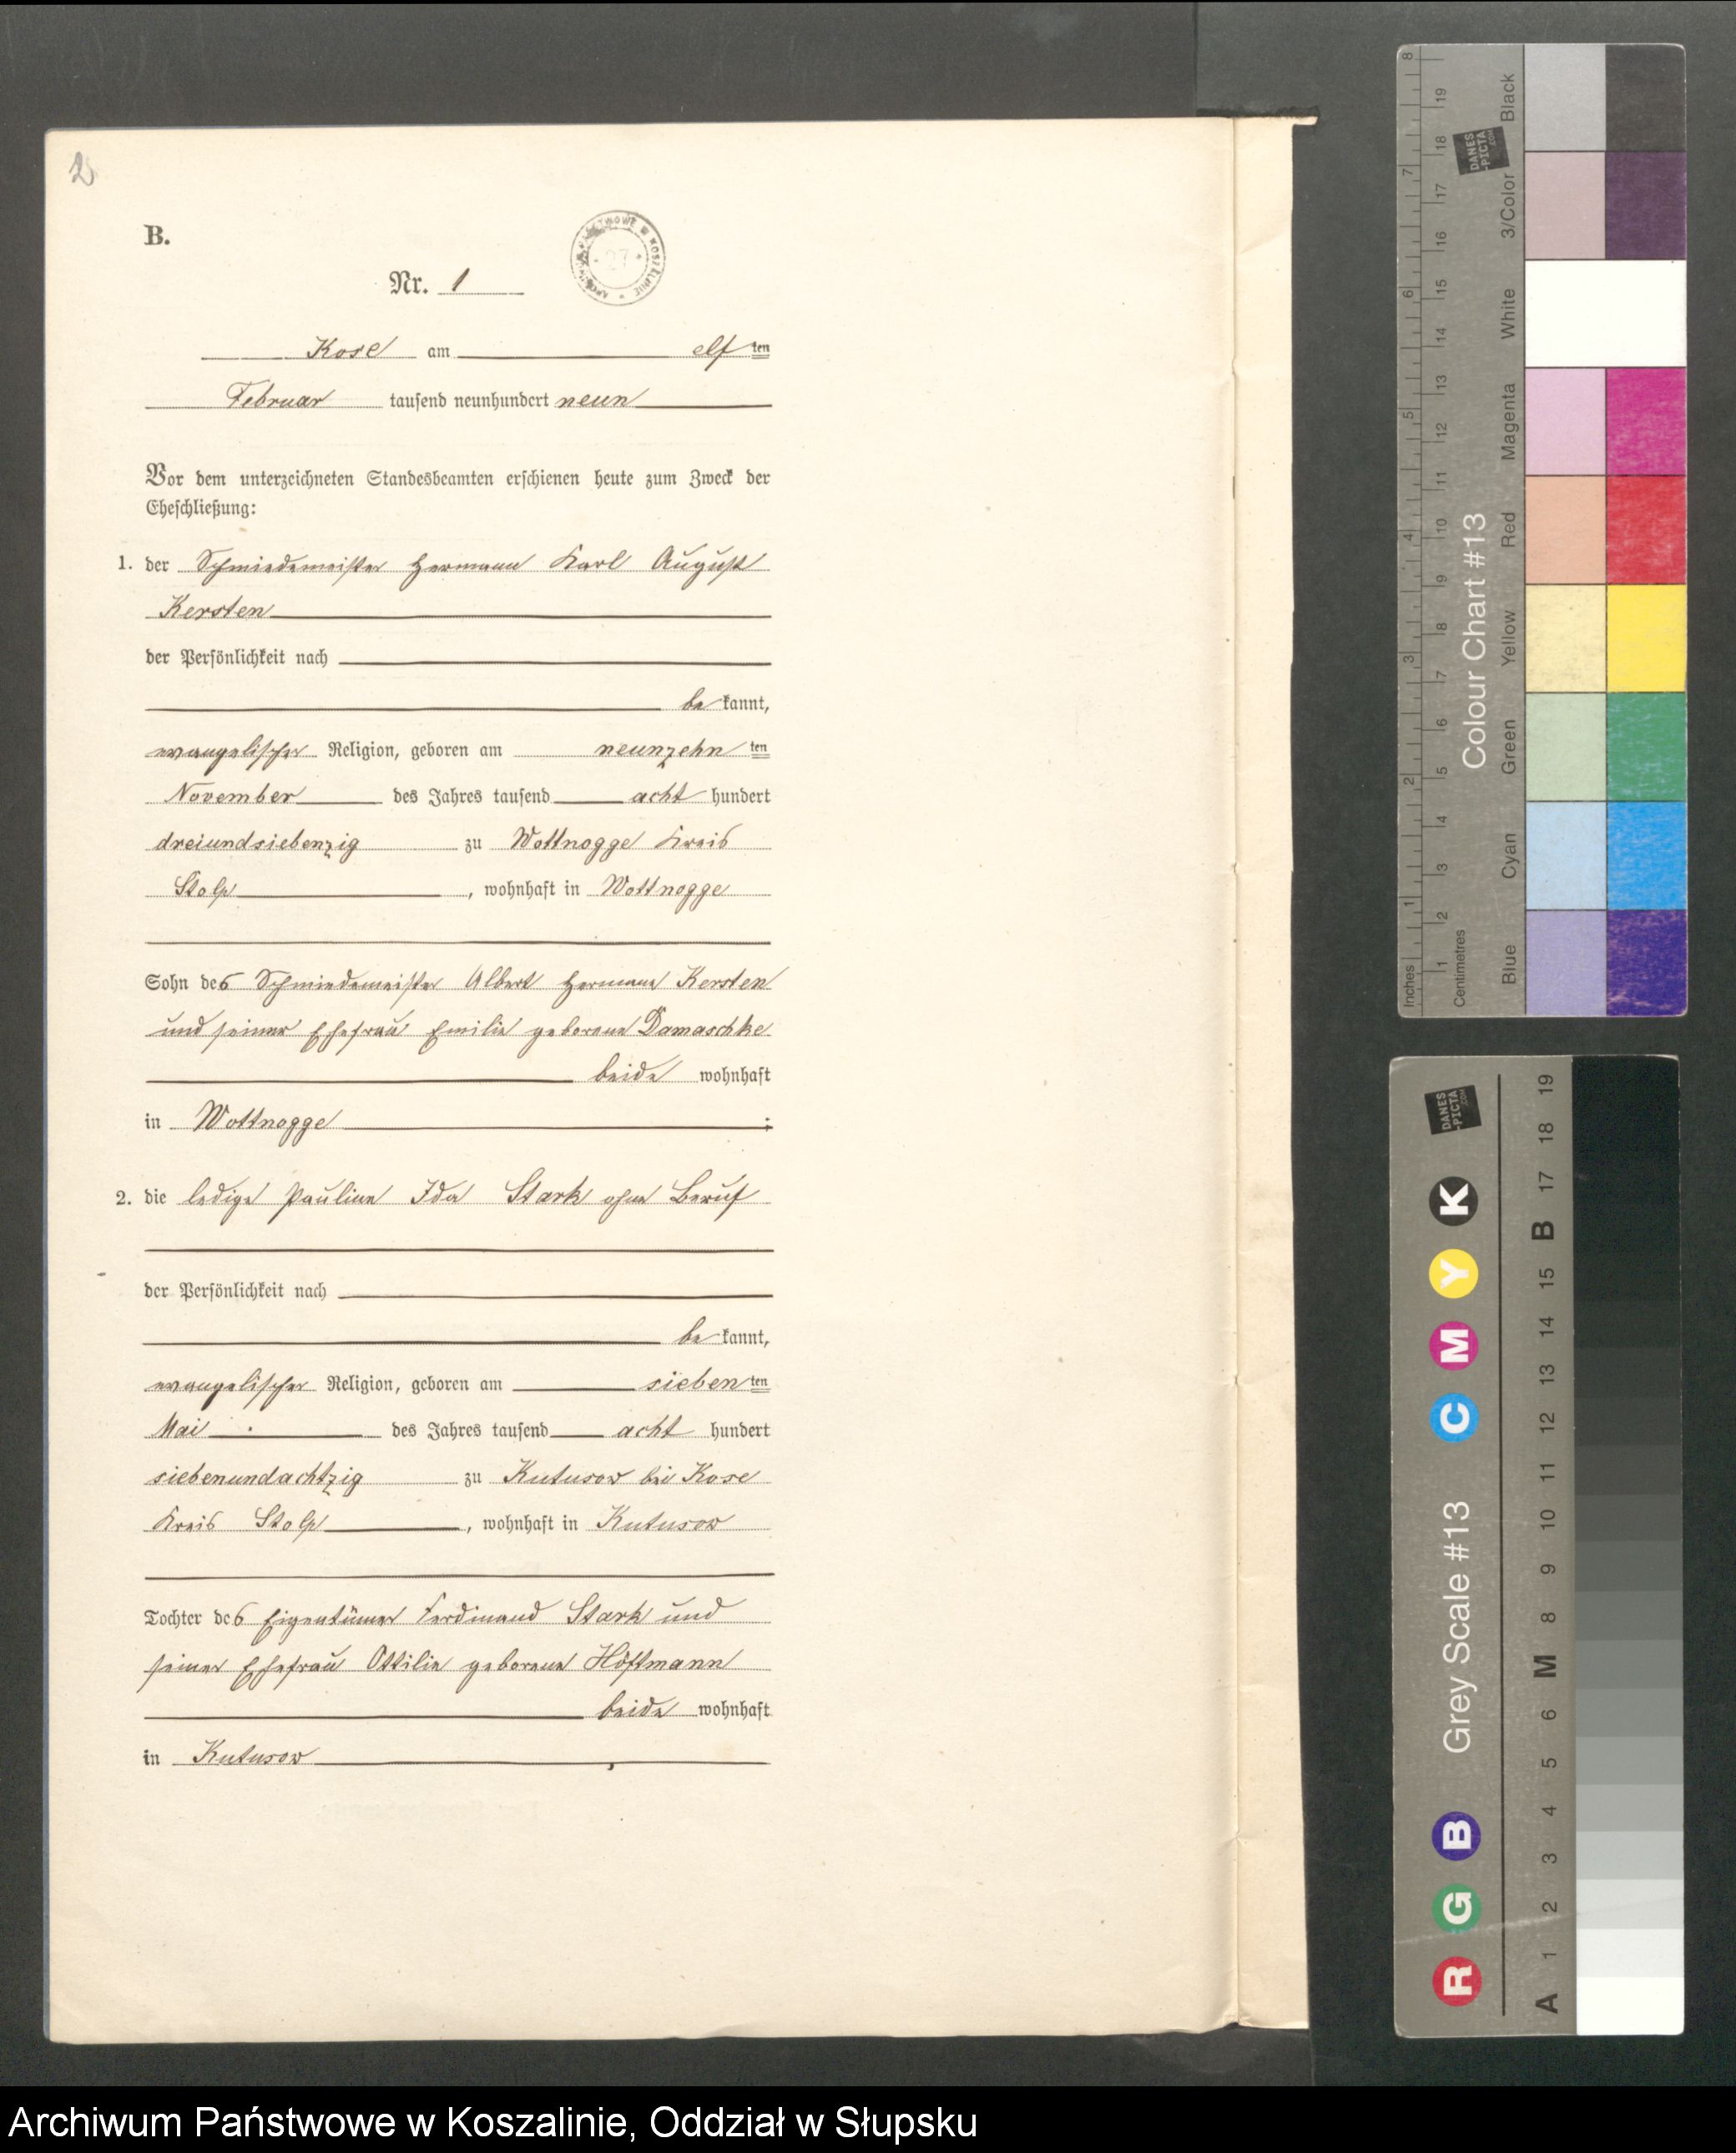 2
B.
Nr. 1
Kose am elf ten
Februar tausend neunhundert neun
Vor dem unterzeichneten Standesbeamten erschienen heute zum Zweck der
Eheschließung:
1. der Schmiedemeister Hermann Karl August
Kersten
der Persönlichkeit nach
be kannt,
evangelischer Religion, geboren am neunzehn ten
November des Jahres tausend acht hundert
dreiundsiebenzig zu Wottnogge Kreis
Stolp, wohnhaft in Wottnogge
Sohn des Schmiedemeister Albert Hermann Kersten
und seiner Ehefrau Emilie geborene Damaschke
beide wohnhaft
in Wottnogge ;
2. die ledige Pauline Ida Stark ohne Beruf
der Persönlichkeit nach
be kannt,
evangelischer Religion, geboren am sieben ten
Mai des Jahres tausend acht hundert
siebenundachtzig zu Kutusow bei Kose
Kreis Stolp, wohnhaft in Kutusow
Tochter des Eigentümer Ferdinand Stark und
seiner Ehefrau Ottilie geborene Höftmann
beide wohnhaft
in Kutusow ,
Inches 1 2 3 4 5 6 7 8
Centimetres 1 2 3 4 5 6 7 8 9 10 11 12 13 14 15 16 17 18 19
Colour Chart #13
Blue Cyan Green Yellow Red Magenta White 3/Color Black
DANES
-PICTA
.COM
Grey Scale #13
R G B C M Y K
A 1 2 3 4 5 6 M 8 9 10 11 12 13 14 15 B 17 18 19
DANES
-PICTA
.COM
Archiwum Państwowe w Koszalinie, Oddział w Słupsku